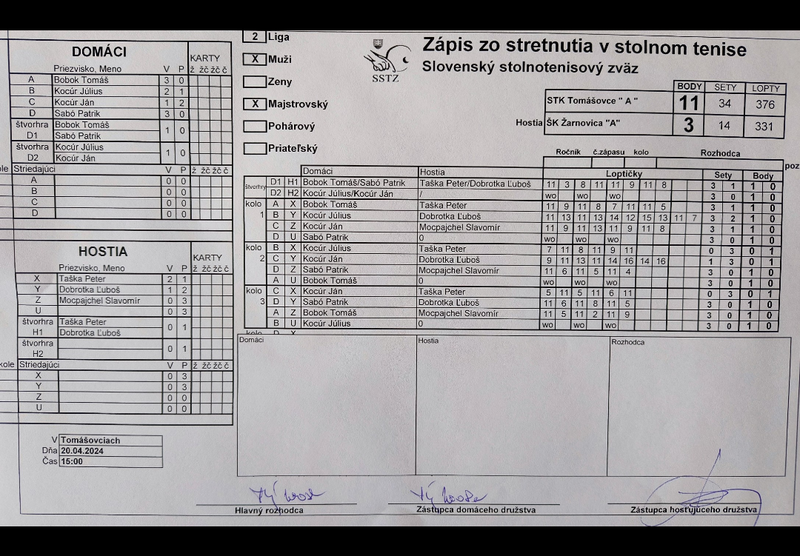 Zápis zo stretnutia v stolnom tenise
Slovenský stolnotenisový zväz
SSTZ
2 Liga
X Muži
Ženy
X Majstrovský
Pohárový
Priateľský
BODY SETY LOPTY
STK Tomášovce "A" 11 34 376
Hostia ŠK Žarnovica "A" 3 14 331
DOMÁCI
Priezvisko, Meno V P KARTY
ž žč žč č
A Bobok Tomáš 3 0
B Kocúr Július 2 1
C Kocúr Ján 1 2
D Sabó Patrik 3 0
štvorhra Bobok Tomáš 1 0
D1 Sabó Patrik
štvorhra Kocúr Július 1 0
D2 Kocúr Ján
Striedajúci V P
A 0 0
B 0 0
C 0 0
D 0 0
HOSTIA
Priezvisko, Meno V P KARTY
ž žč žč č
X Taška Peter 2 1
Y Dobrotka Ľuboš 1 2
Z Mocpajchel Slavomír 0 3
U 0 3
štvorhra Taška Peter 0 1
H1 Dobrotka Ľuboš
štvorhra 0 1
H2
Striedajúci V P
X 0 3
Y 0 3
Z 0 0
U 0 0
V Tomášovciach
Dňa 20.04.2024
Čas 15:00
Ročník č.zápasu kolo Rozhodca
Domáci Hostia Loptičky Sety Body poz
štvorhry D1 H1 Bobok Tomáš/Sabó Patrik Taška Peter/Dobrotka Ľuboš 11 3 8 11 11 9 11 8 3 1 1 0
D2 H2 Kocúr Július/Kocúr Ján / wo wo wo 3 0 1 0
kolo 1 A X Bobok Tomáš Taška Peter 11 9 11 8 7 11 11 5 3 1 1 0
B Y Kocúr Július Dobrotka Ľuboš 11 13 11 13 14 12 15 13 11 7 3 2 1 0
C Z Kocúr Ján Mocpajchel Slavomír 11 9 11 8 3 1 1 0
D U Sabó Patrik 0 wo wo wo 3 0 1 0
kolo 2 B X Kocúr Július Taška Peter 7 11 8 11 9 11 0 3 0 1
C Y Kocúr Ján Dobrotka Ľuboš 9 11 13 11 14 16 14 16 1 3 0 1
D Z Sabó Patrik Mocpajchel Slavomír 11 6 11 5 11 4 3 0 1 0
A U Bobok Tomáš 0 wo wo wo 3 0 1 0
kolo 3 C X Kocúr Ján Taška Peter 5 11 5 11 6 11 0 3 0 1
D Y Sabó Patrik Dobrotka Ľuboš 11 6 11 8 11 5 3 0 1 0
A Z Bobok Tomáš Mocpajchel Slavomír 11 5 11 2 11 9 3 0 1 0
B U Kocúr Július 0 wo wo wo 3 0 1 0
Domáci Hostia Rozhodca
Hlavný rozhodca Zástupca domáceho družstva Zástupca hosťujúceho družstva